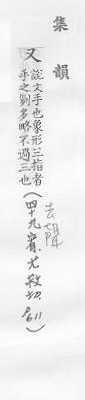 集韻
又
說文手也象形三指者
手之列多略不過三也
(四十九宥尤救切.611)
去聲